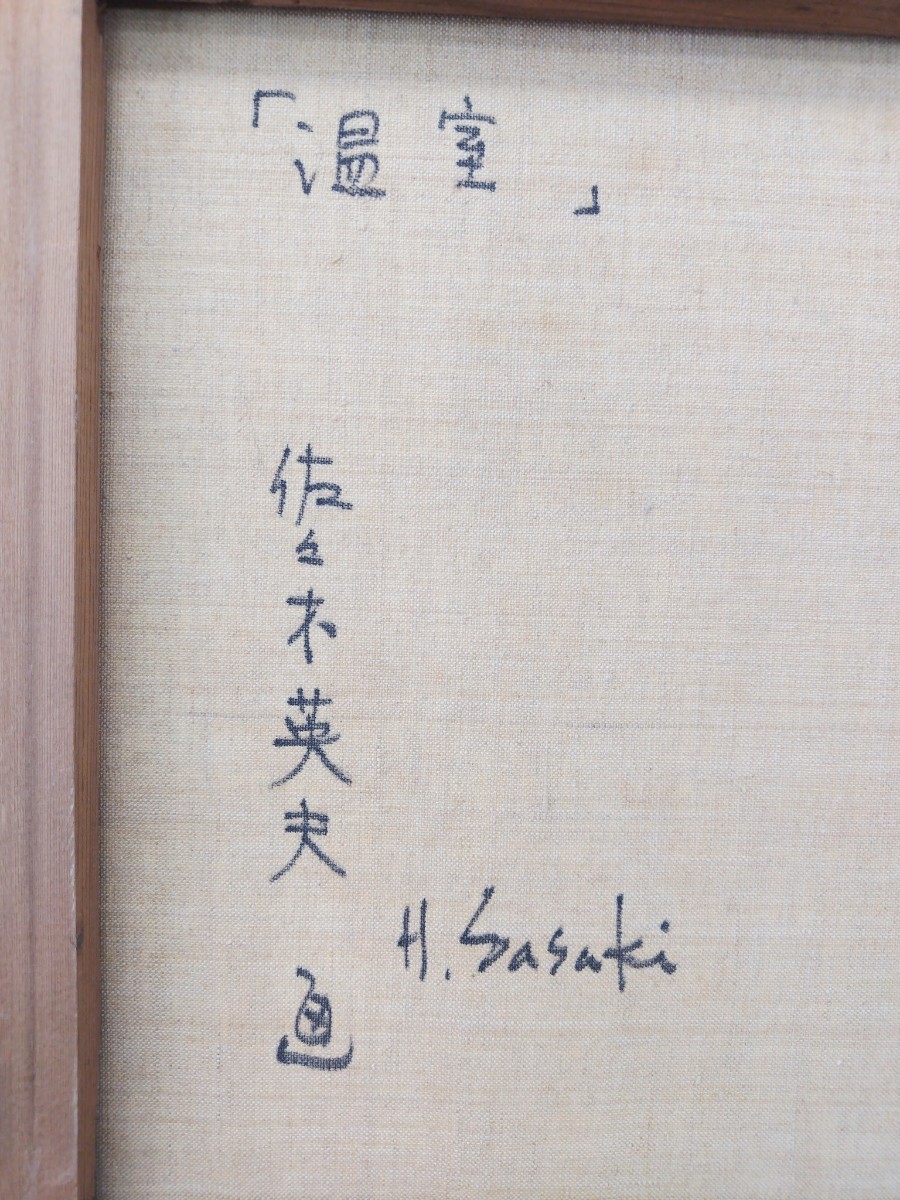 「温室」
佐々木英夫 画
H. Sasaki